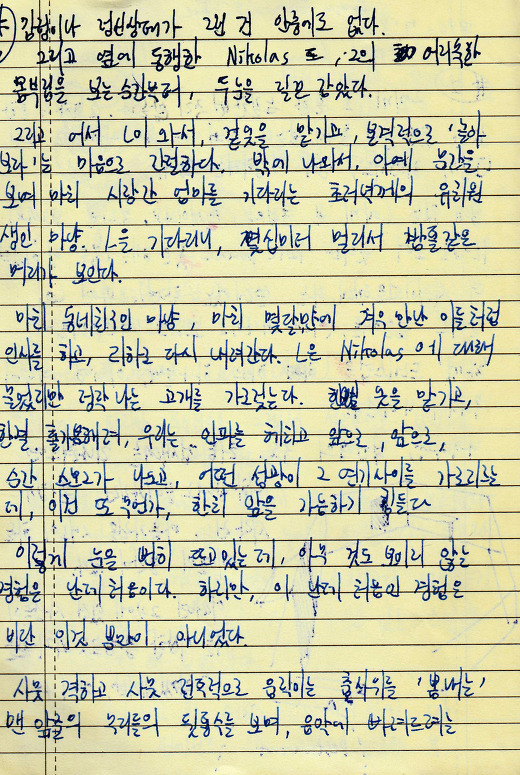 감정이나 정신상태가 그런 건 안중에도 없다.
그리고 옆에 동행한 Nikolas 또, 그의 어리숙한
몸부림을 보는 순간부터, 두눈을 질끈 감았다.
그리고 어서 L이 와서, 겉옷을 맡기고, 본격적으로 '놀아
보자'는 마음으로 간절하다. 밖에 나와서, 아예 문간을
보며 마치 시장간 엄마를 기다리는 초저녁께의 유치원
생인 마냥. L을 기다리니, 몇십미터 멀리서 방울같은
머리가 보인다.
마치 동네친구인 마냥, 마치 몇달만에 겨우 만난 이들처럼
인사를 하고, 지하로 다시 내려간다. L은 Nikolas에 대해
물었지만 정작 나는 고개를 가로젓는다. 옷을 맡기고,
한결 홀가분해져, 우리는 인파를 헤치고 앞으로, 앞으로,
순간 스모그가 나오고, 어떤 섬광이 그 연기사이를 가로지르는
데, 이건 또 무언가, 한치 앞을 가늠하기 힘들다
이렇게 눈을 뻔히 뜨고있는데, 아무 것도 보이지 않는
경험은 난생처음이다. 하지만, 이 난생처음인 경험은
비단 이것 뿐만이 아니었다.
사뭇 격하고 사뭇 전투적으로 움직이는 춤사위를 '뽐내는'
맨 앞줄의 무리들의 뒷통수를 보며, 음악에